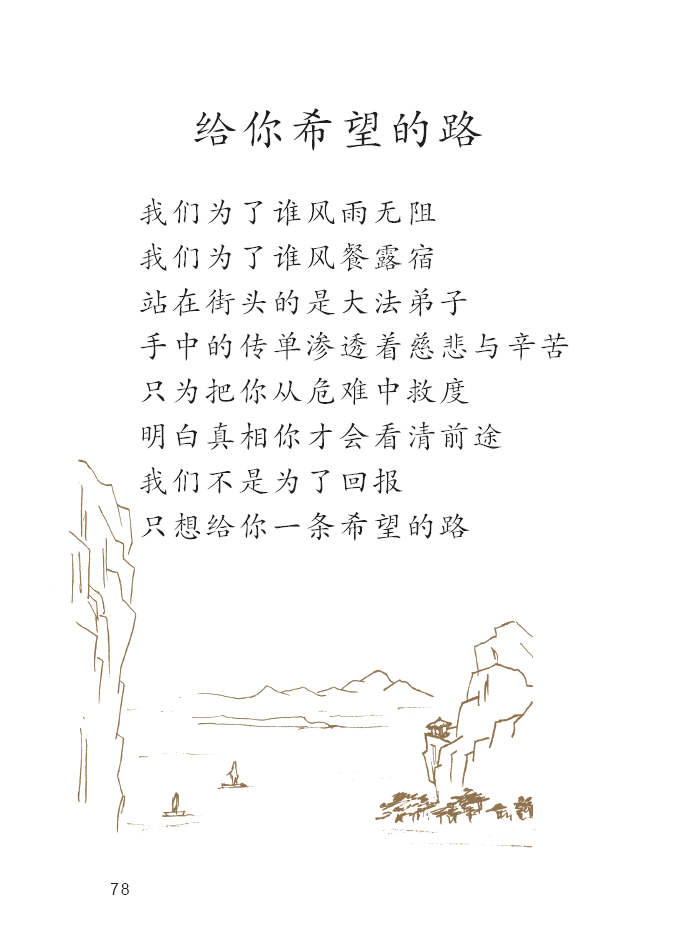 给你希望的路
我们为了谁风雨无阻
我们为了谁风餐露宿
站在街头的是大法弟子
手中的传单渗透着慈悲与辛苦
只为把你从危难中救度
明白真相你才会看清前途
我们不是为了回报
只想给你一条希望的路
78